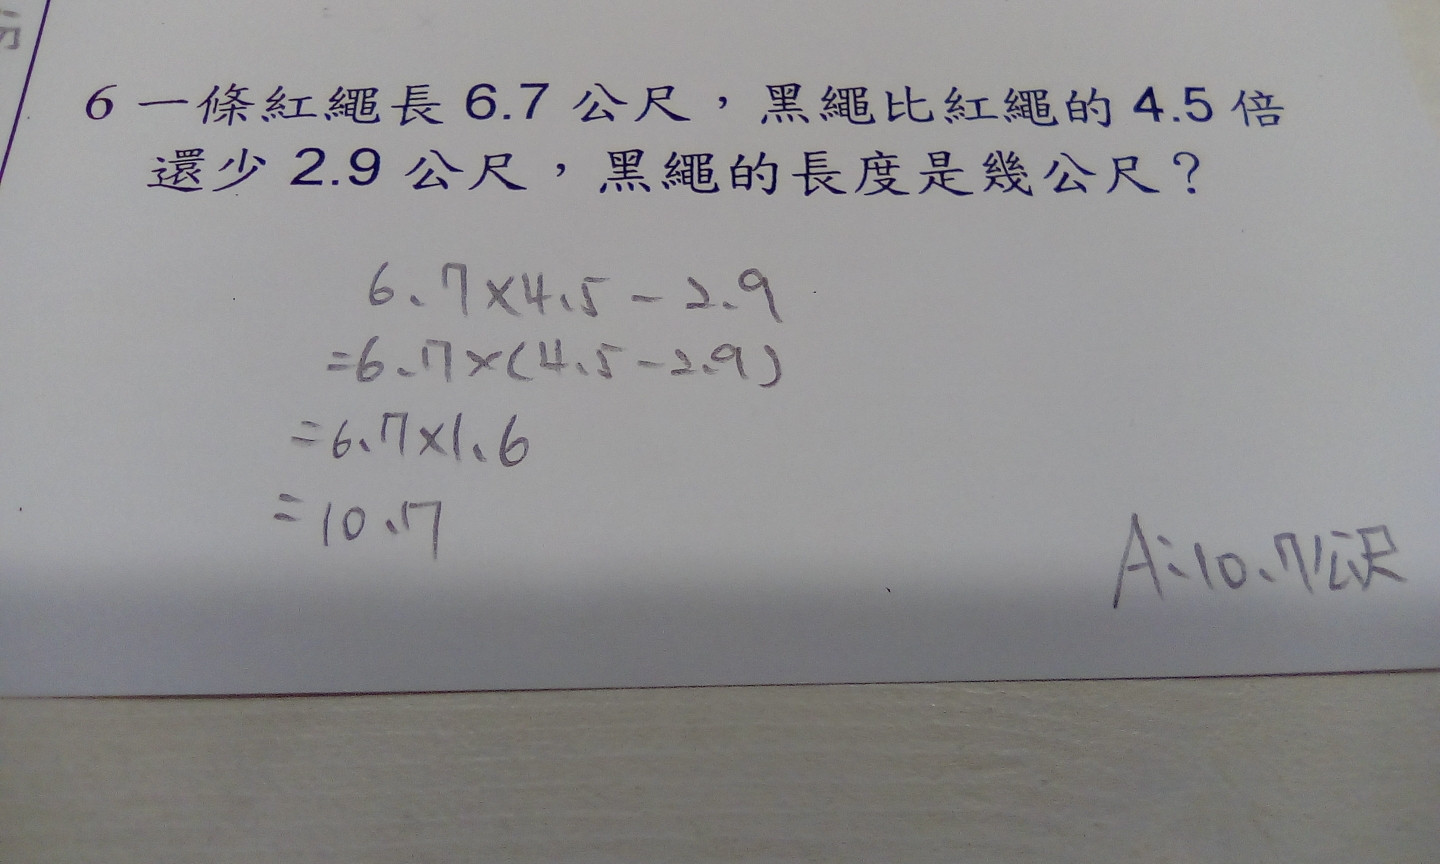 6 一條紅繩長 6.7 公尺，黑繩比紅繩的 4.5 倍
還少 2.9 公尺，黑繩的長度是幾公尺？
6.7×4.5-2.9
=6.7×(4.5-2.9)
=6.7×1.6
=10.7
A:10.7公尺